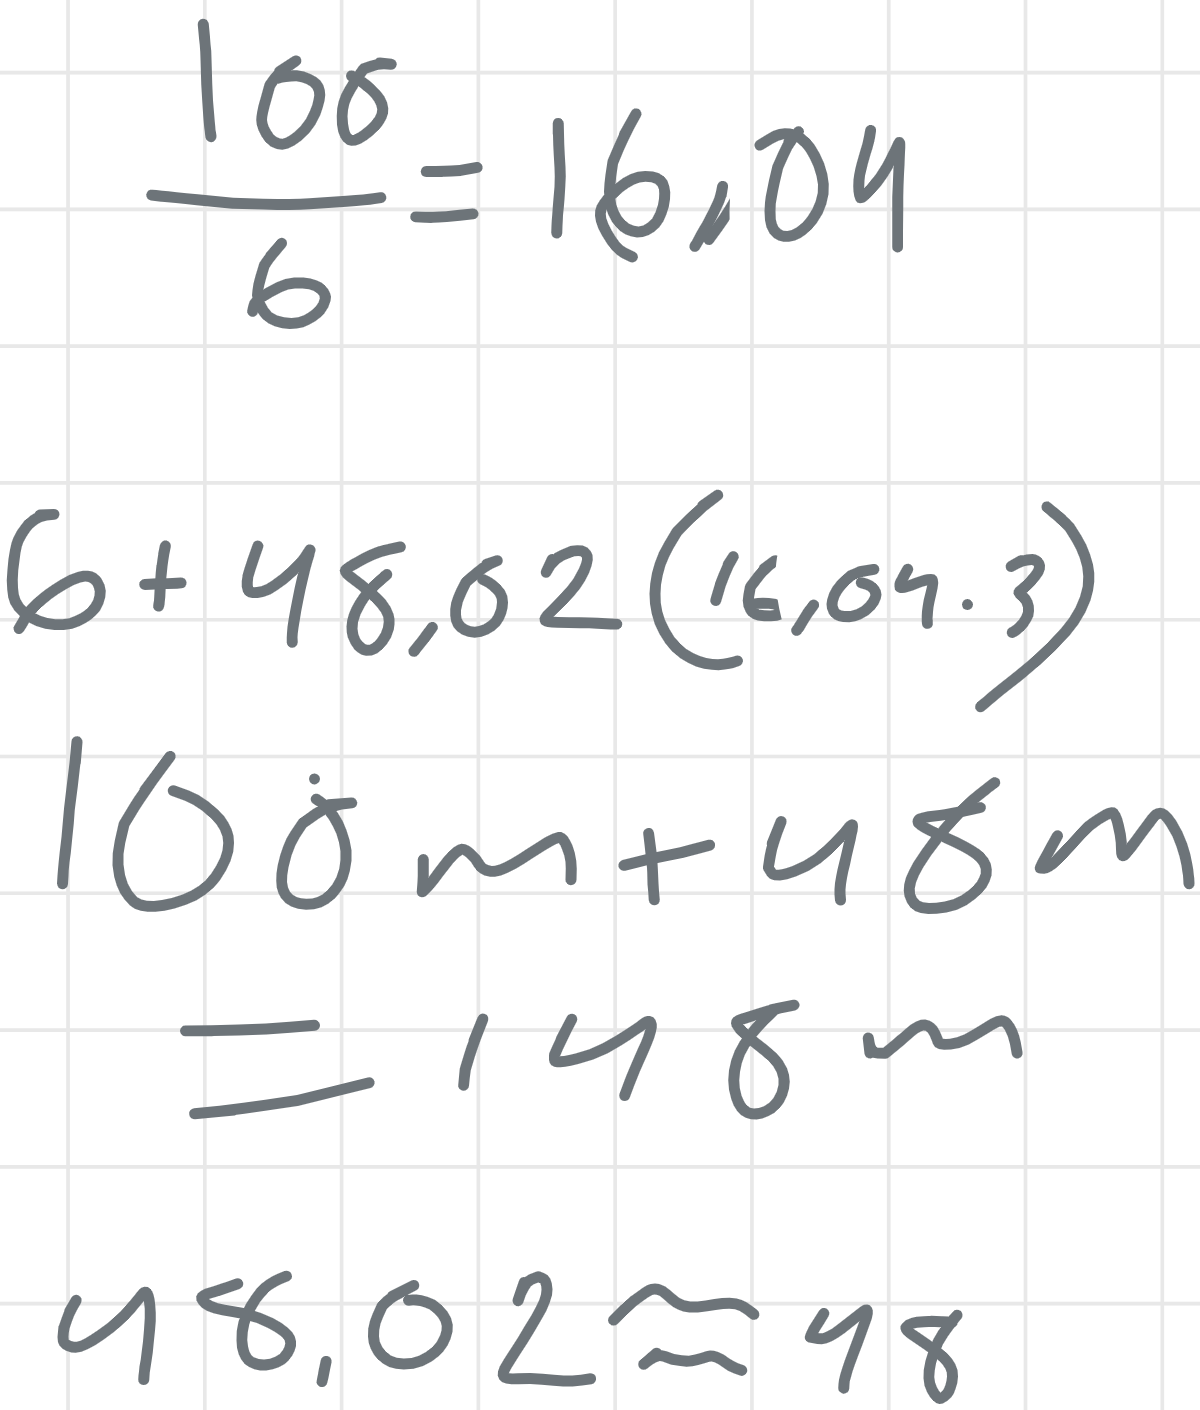 100
6
= 16,04
6 + 48,02 (16,04 · 3)
100 m + 48 m
= 148 m
48,02 ≈ 48